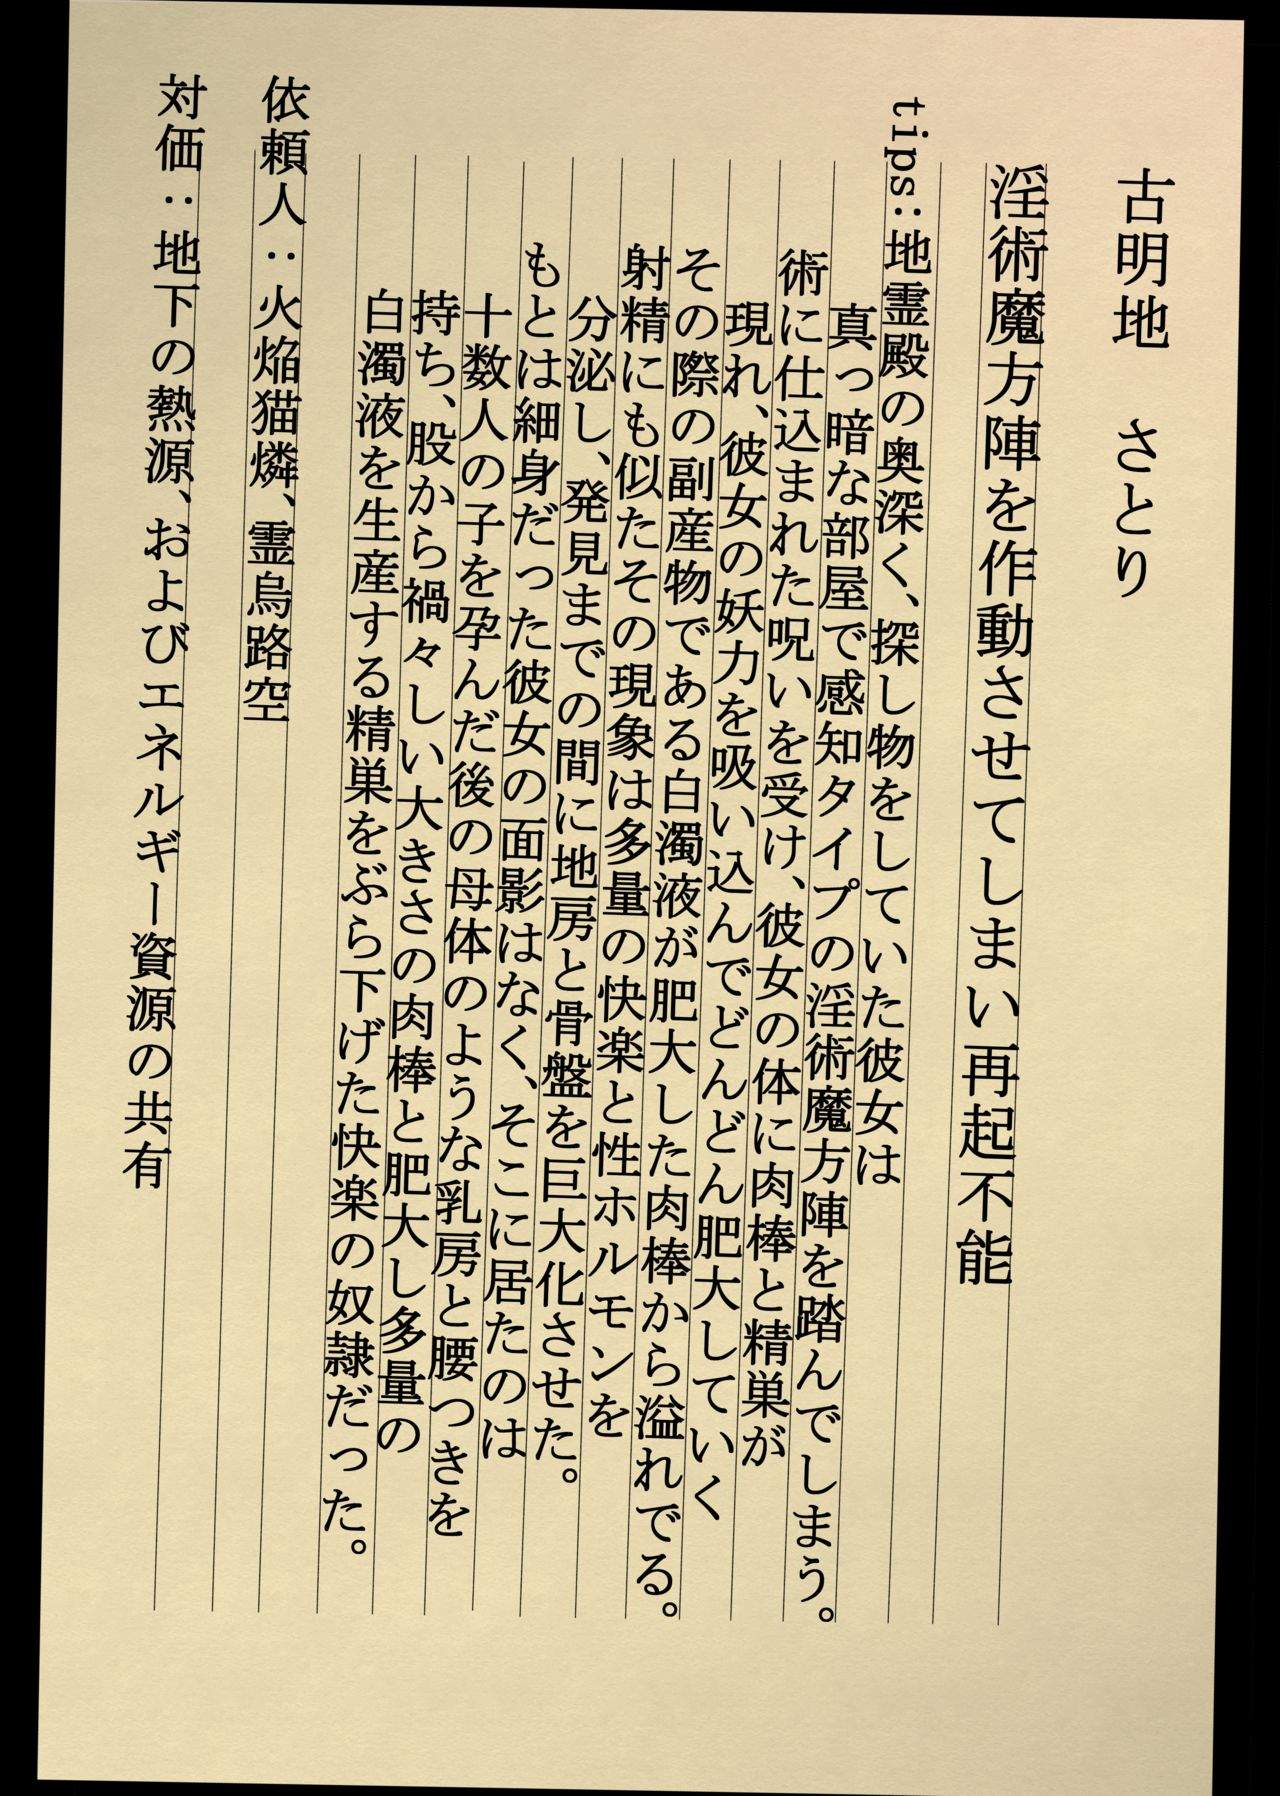 古明地　さとり
淫術魔方陣を作動させてしまい再起不能
tips:地霊殿の奥深く、探し物をしていた彼女は
真っ暗な部屋で感知タイプの淫術魔方陣を踏んでしまう。
術に仕込まれた呪いを受け、彼女の体に肉棒と精巣が
現れ、彼女の妖力を吸い込んでどんどん肥大していく
その際の副産物である白濁液が肥大した肉棒から溢れでる。
射精にも似たその現象は多量の快楽と性ホルモンを
分泌し、発見までの間に地房と骨盤を巨大化させた。
もとは細身だった彼女の面影はなく、そこに居たのは
十数人の子を孕んだ後の母体のような乳房と腰つきを
持ち、股から禍々しい大きさの肉棒と肥大し多量の
白濁液を生産する精巣をぶら下げた快楽の奴隷だった。
依頼人：火焔猫燐、霊烏路空
対価：地下の熱源、およびエネルギー資源の共有